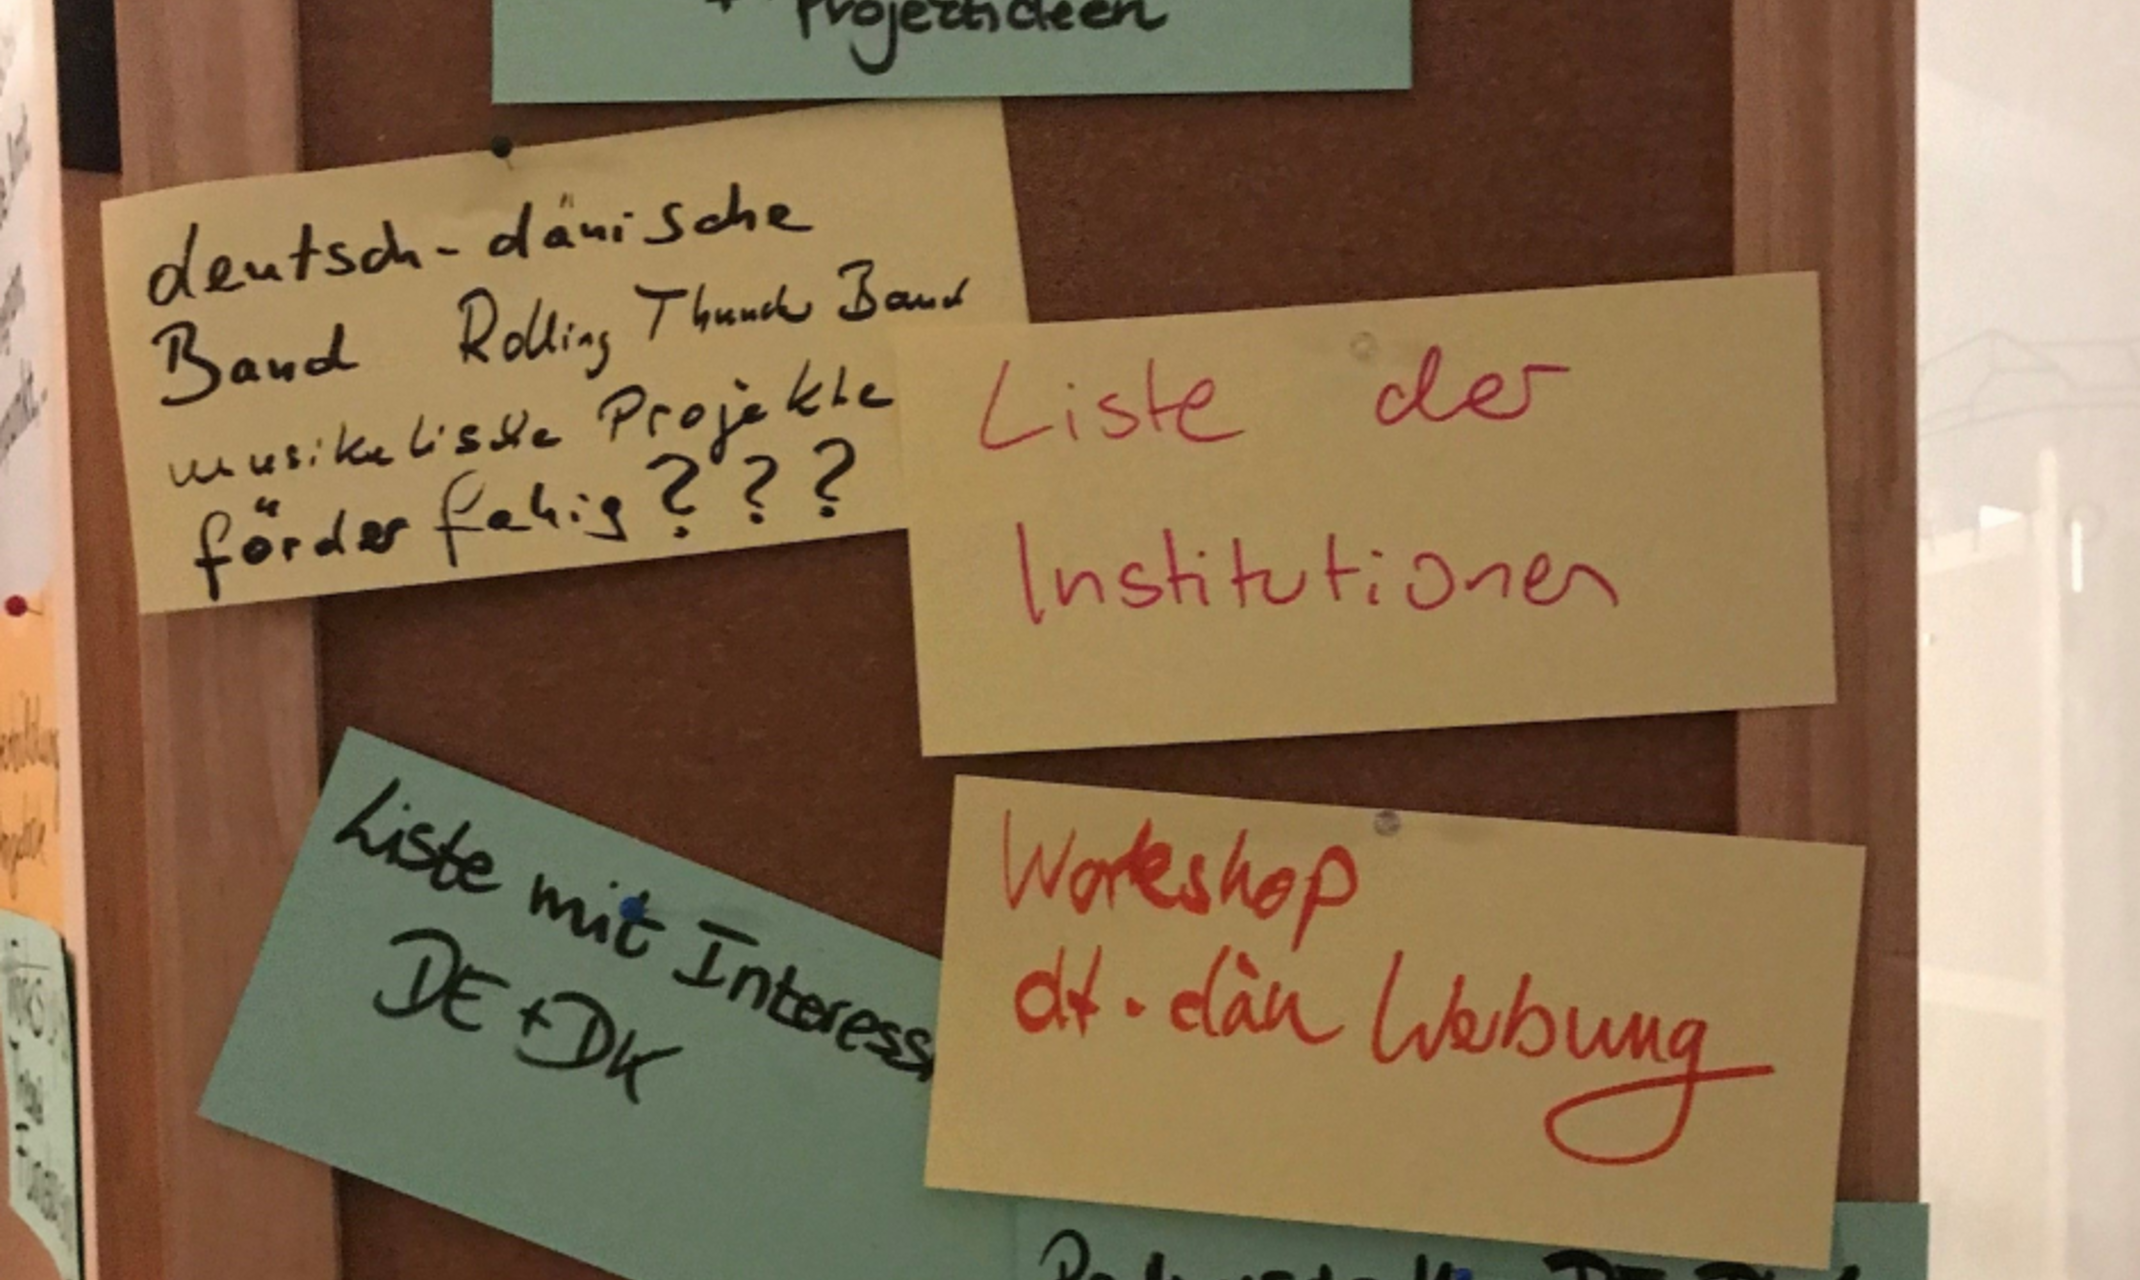 Projektideen
deutsch-dänische
Band Rolling Thunder Band
musikalische Projekte
förderfähig ? ? ?
Liste der
Institutionen
Liste mit Interess
DE + DK
Workshop
dt.-dän Werbung